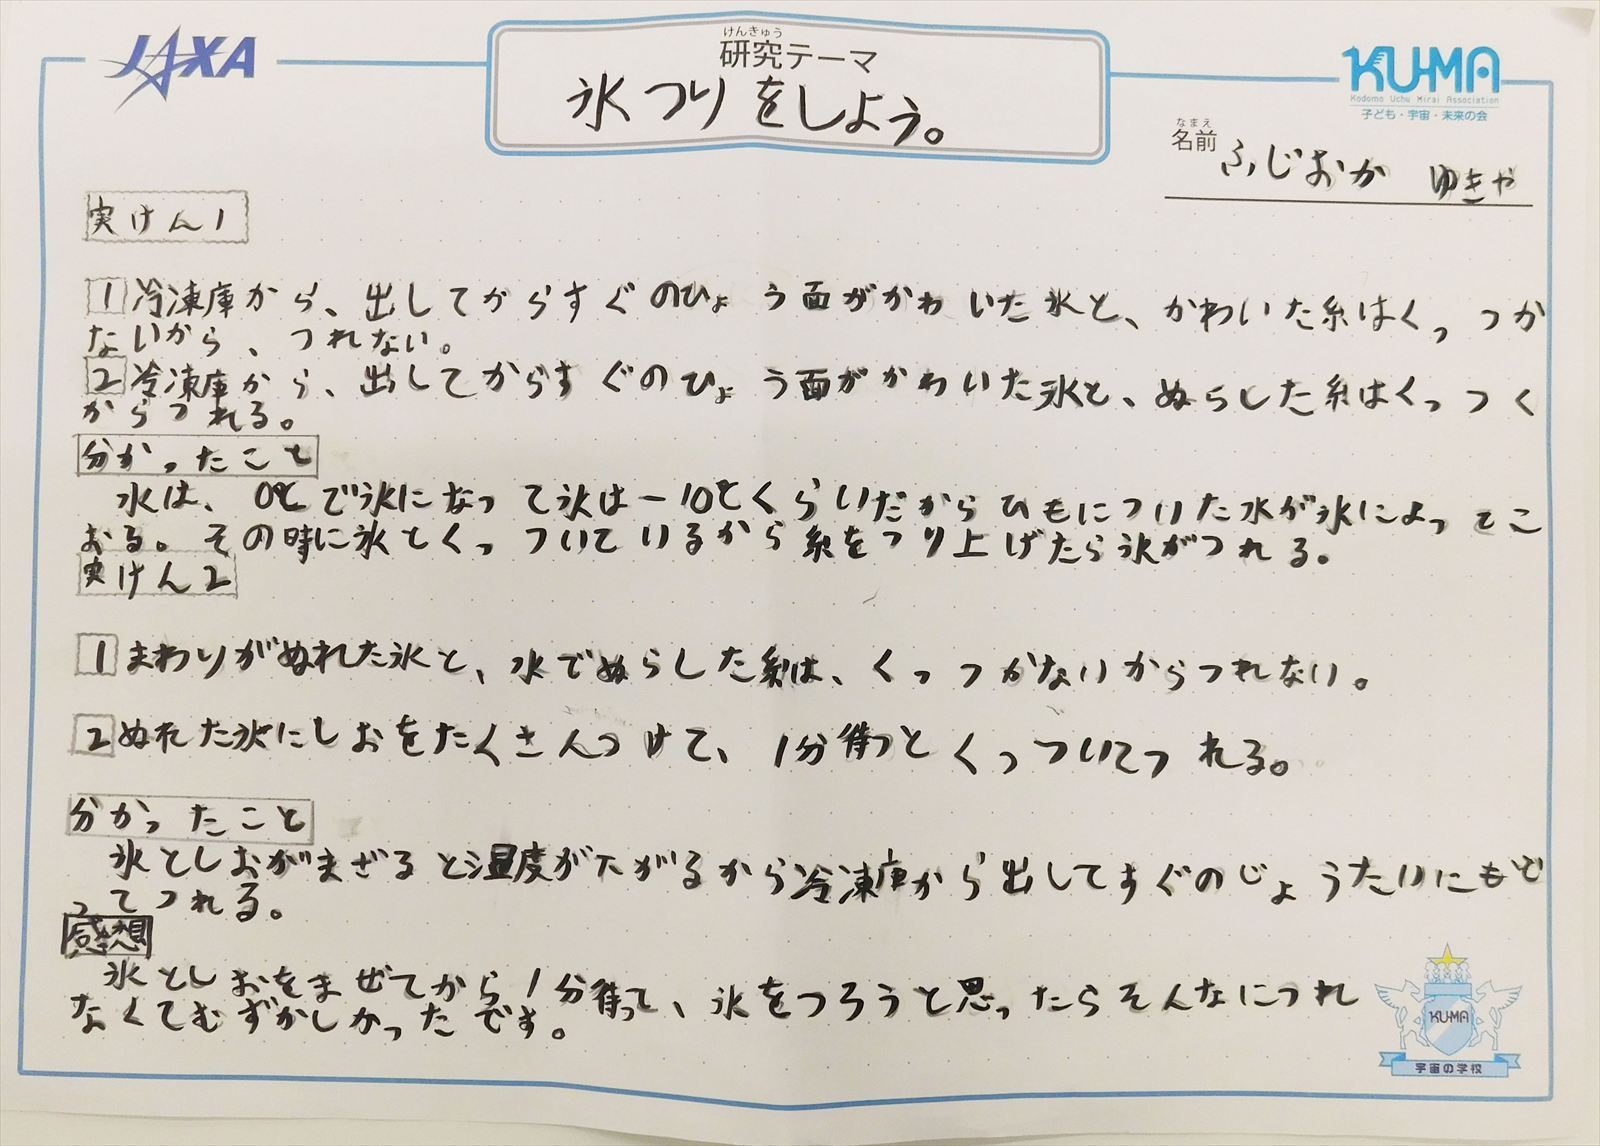 JAXA
けんきゅう
研究テーマ
氷つりをしよう。
KU-MA
Kodomo Uchu Mirai Association
子ども・宇宙・未来の会
なまえ
名前 ふじおか ゆきや
実けん1
1 冷凍庫から、出してからすぐのひょう面がかわいた氷と、かわいた糸はくっつか
ないから、つれない。
2 冷凍庫から、出してからすぐのひょう面がかわいた氷と、ぬらした糸はくっつく
からつれる。
分かったこと
水は、0℃で氷になって氷は-10℃くらいだからひもについた水が氷によってこ
おる。その時に氷とくっついているから糸をつり上げたら氷がつれる。
実けん2
1 まわりがぬれた氷と、水でぬらした糸は、くっつかないからつれない。
2 ぬれた氷にしおをたくさんつけて、1分待つとくっついてつれる。
分かったこと
氷としおがまざると温度が下がるから冷凍庫から出してすぐのじょうたいにもど
ってつれる。
感想
氷としおをまぜてから1分待って、氷をつろうと思ったらそんなにつれ
なくてむずかしかったです。
KU-MA
宇宙の学校